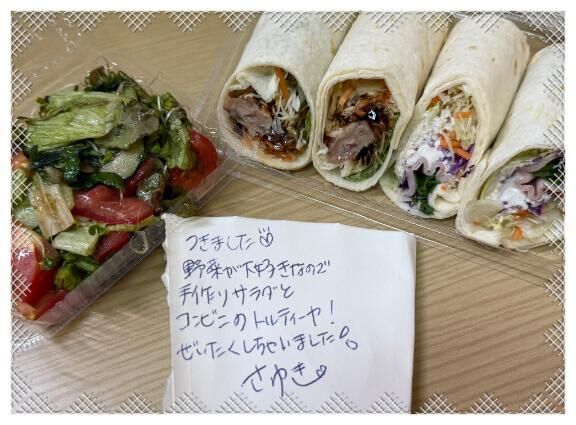 つきました♡
野菜が大好きなので
手作りサラダと
コンビニのトルティーヤ!
ぜいたくしちゃいました!
さゆき